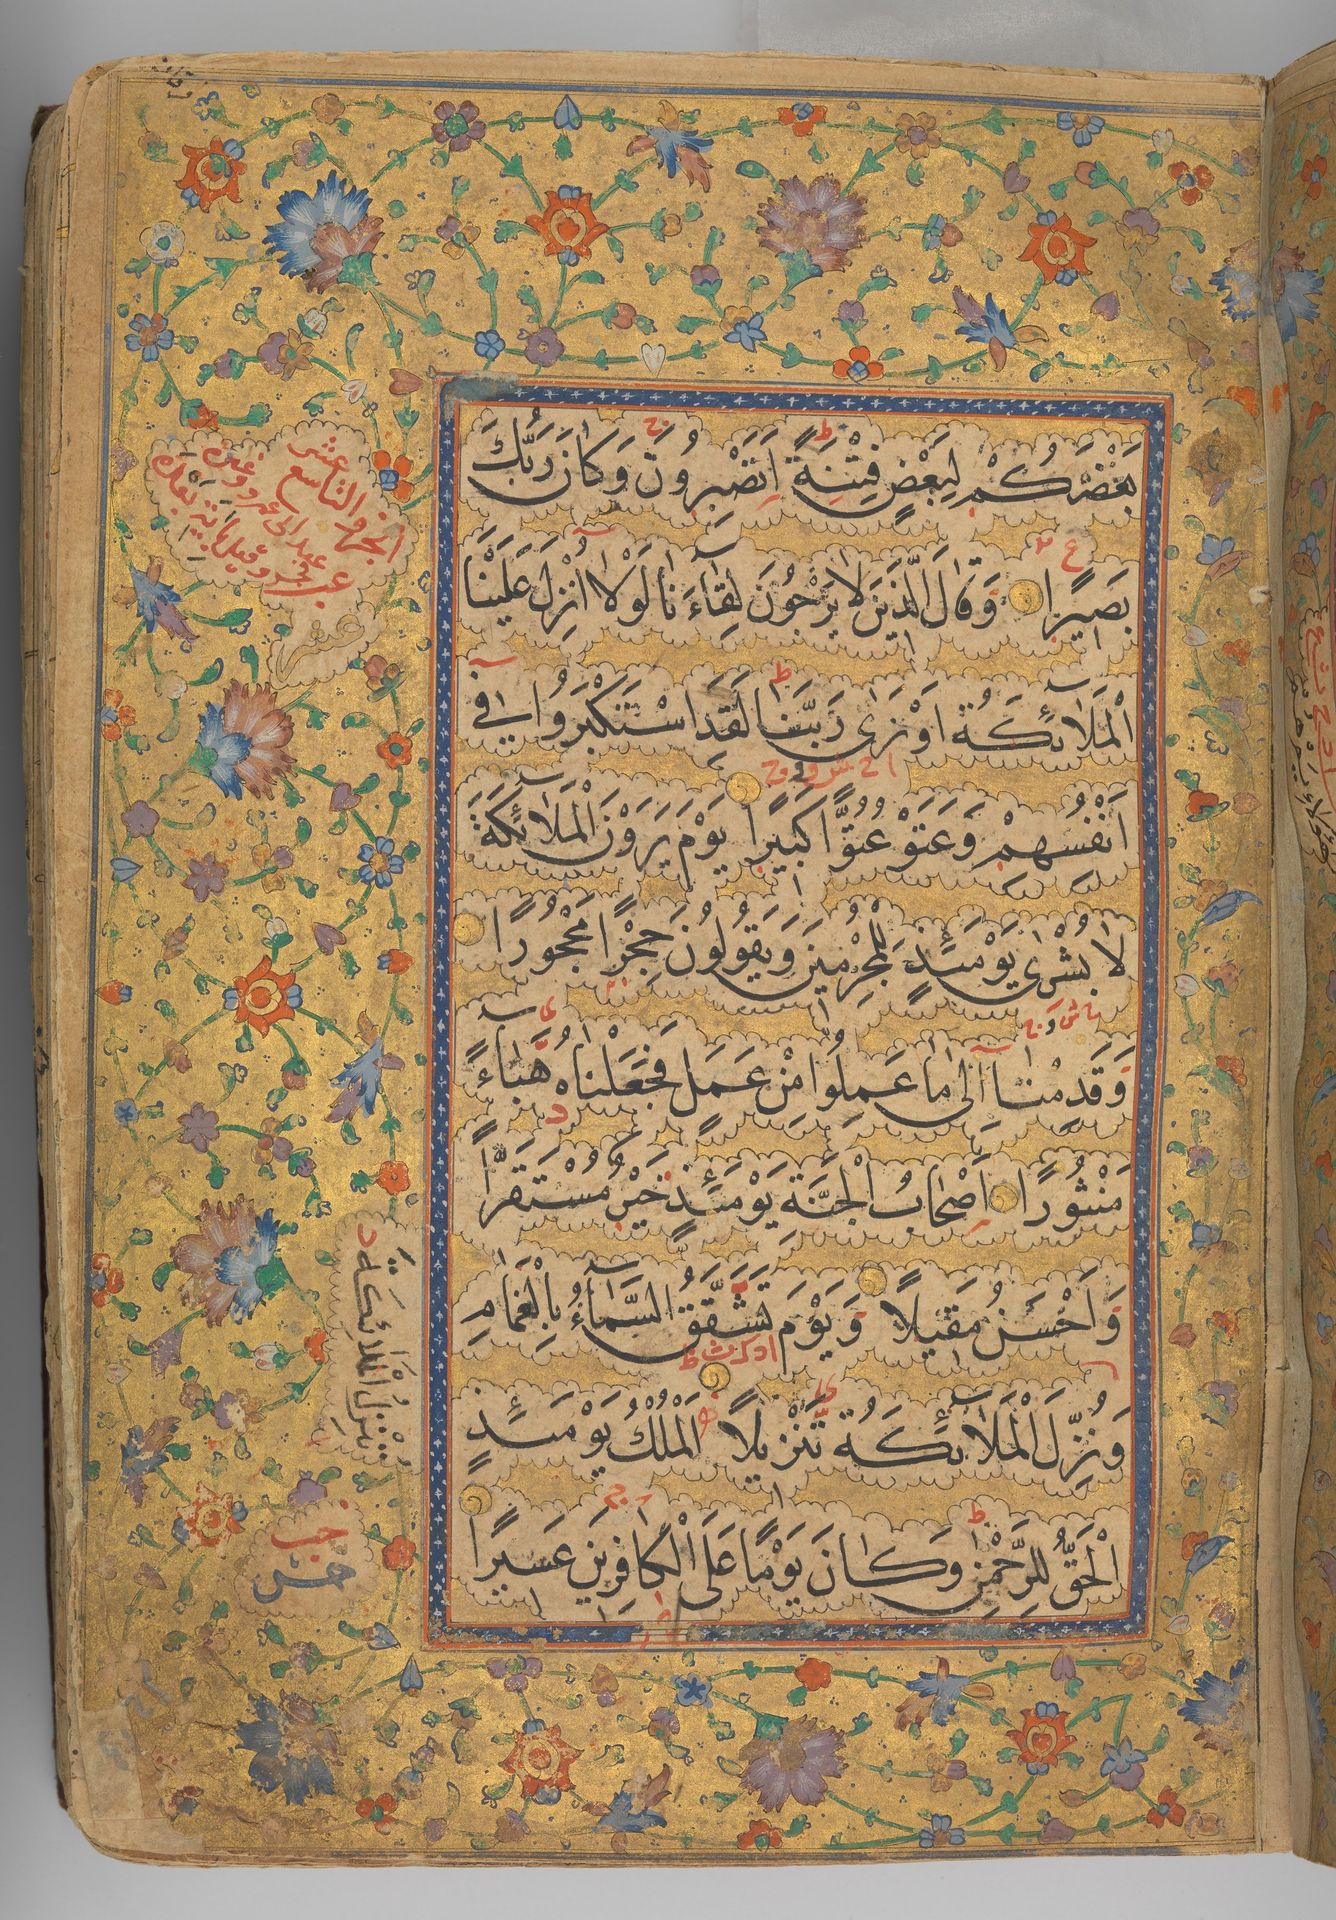 بَعْضَكُمْ لِبَعْضٍ فِتْنَةً اَتَصْبِرُونَ وَكَانَ رَبُّكَ
بَصِيرًا وَقَالَ الَّذِينَ لَا يَرْجُونَ لِقَاءَنَا لَوْلَا اُنْزِلَ عَلَيْنَا
الْمَلَائِكَةُ اَوْ نَرَى رَبَّنَا لَقَدِ اسْتَكْبَرُوا فِي
اَنْفُسِهِمْ وَعَتَوْ عُتُوًّا كَبِيرًا يَوْمَ يَرَوْنَ الْمَلَائِكَةَ
لَا بُشْرَى يَوْمَئِذٍ لِلْمُجْرِمِينَ وَيَقُولُونَ حِجْرًا مَحْجُورًا
وَقَدِمْنَا اِلَى مَا عَمِلُوا مِنْ عَمَلٍ فَجَعَلْنَاهُ هَبَاءً
مَنْثُورًا اَصْحَابُ الْجَنَّةِ يَوْمَئِذٍ خَيْرٌ مُسْتَقَرًّا
وَاَحْسَنُ مَقِيلًا وَيَوْمَ تَشَقَّقُ السَّمَاءُ بِالْغَمَامِ
وَنُزِّلَ الْمَلَائِكَةُ تَنْزِيلًا اَلْمُلْكُ يَوْمَئِذٍ
الْحَقُّ لِلرَّحْمٰنِ وَكَانَ يَوْمًا عَلَى الْكَافِرِينَ عَسِيرًا
الجزو التاسع عشر
عشر
نُنْزِلُ الْمَلَائِكَةَ